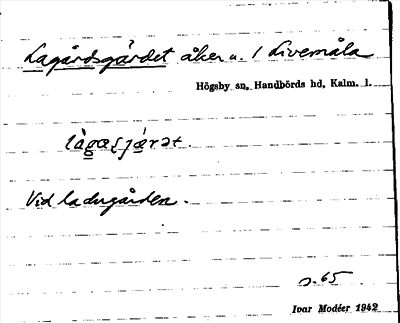 Lagårdsgärdet åker u. / Livemåla
Högsby sn, Handbörds hd, Kalm. l.
Vid ladugården.
s. 65
Ivar Modéer 1942